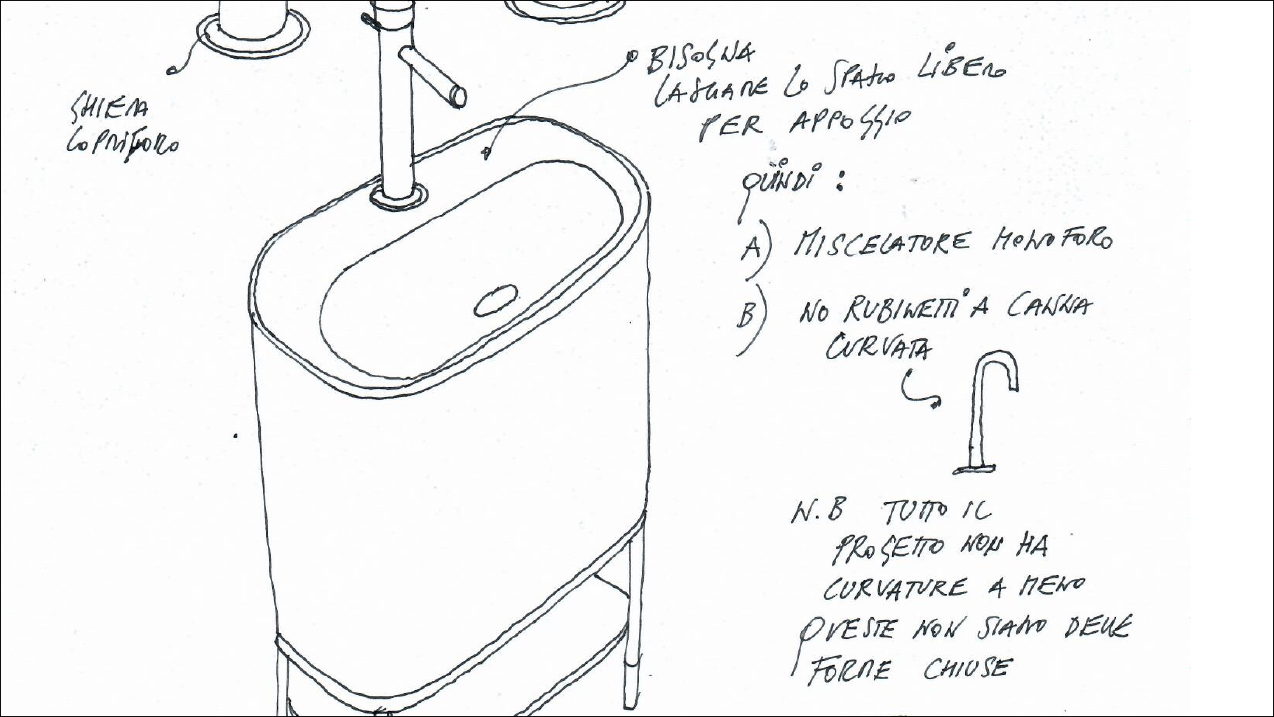 GHIERA
COPRIFORO
BISOGNA
LASCIARE LO SPAZIO LIBERO
PER APPOGGIO
QUINDI :
A) MISCELATORE MONOFORO
B) NO RUBINETTI A CANNA
CURVATA
N.B TUTTO IL
PROGETTO NON HA
CURVATURE A MENO
QUESTE NON SIANO DELLE
FORME CHIUSE